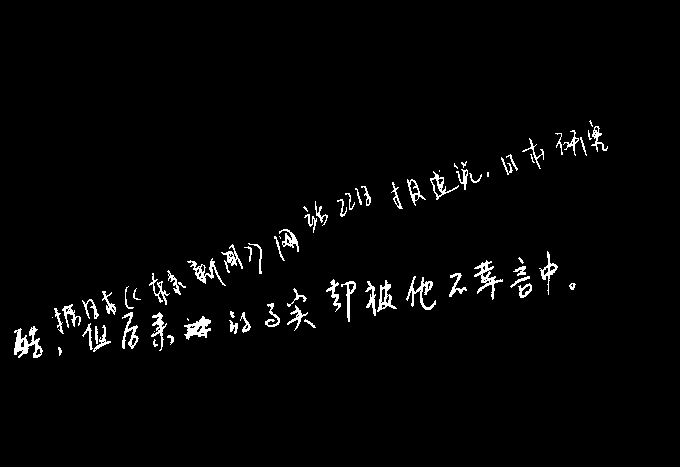 据日本《东京新闻》网站22日报道说，日本研究
酷，但后来的事实却被他不幸言中。